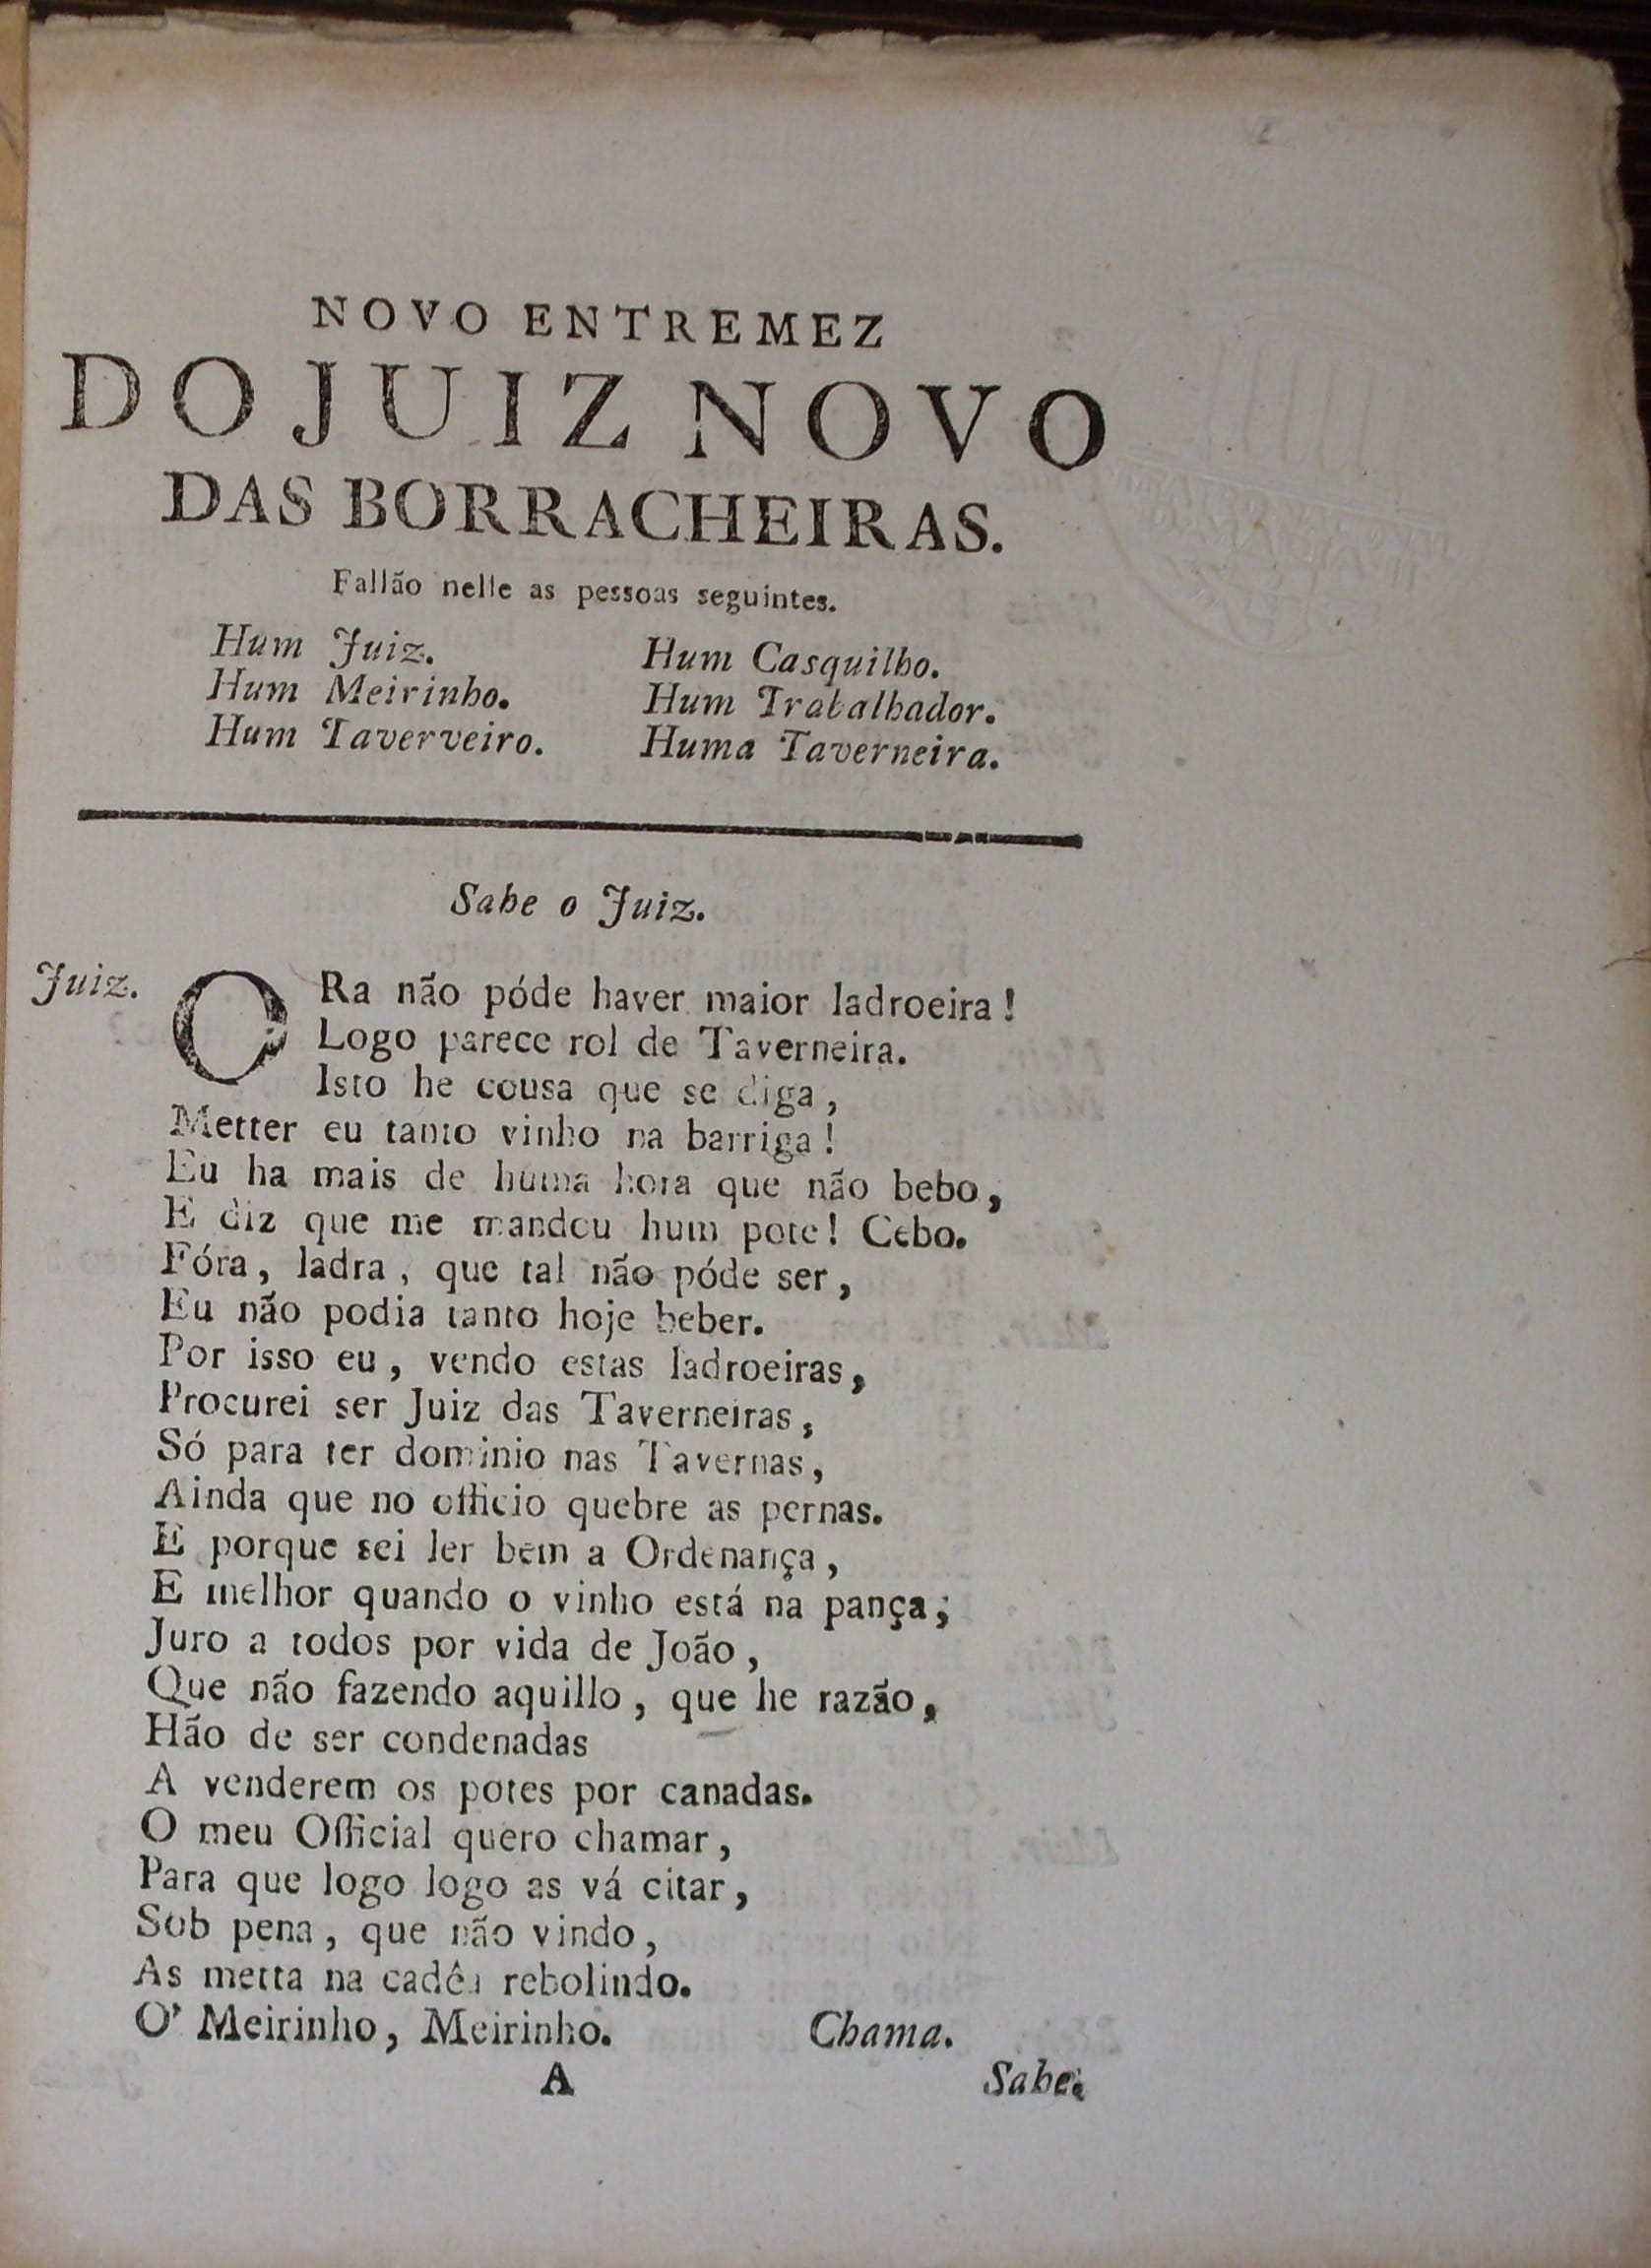 NOVO ENTREMEZ
DO JUIZ NOVO
DAS BORRACHEIRAS.
Fallão nelle as pessoas seguintes.
Hum Juiz. Hum Casquilho.
Hum Meirinho. Hum Trabalhador.
Hum Taverveiro. Huma Taverneira.
Sahe o Juiz.
Juiz. ORa não póde haver maior ladroeira!
Logo parece rol de Taverneira.
Isto he cousa que se diga,
Metter eu tanto vinho na barriga!
Eu ha mais de huma hora que não bebo,
E diz que me mandou hum pote! Cebo.
Fóra, ladra, que tal não póde ser,
Eu não podia tanto hoje beber.
Por isso eu, vendo estas ladroeiras,
Procurei ser Juiz das Taverneiras,
Só para ter dominio nas Tavernas,
Ainda que no officio quebre as pernas.
E porque sei ler bem a Ordenança,
E melhor quando o vinho está na pança;
Juro a todos por vida de João,
Que não fazendo aquillo, que he razão,
Hão de ser condenadas
A venderem os potes por canadas.
O meu Official quero chamar,
Para que logo logo as vá citar,
Sob pena, que não vindo,
As metta na cadêa rebolindo.
O' Meirinho, Meirinho. Chama.
A Sahe.